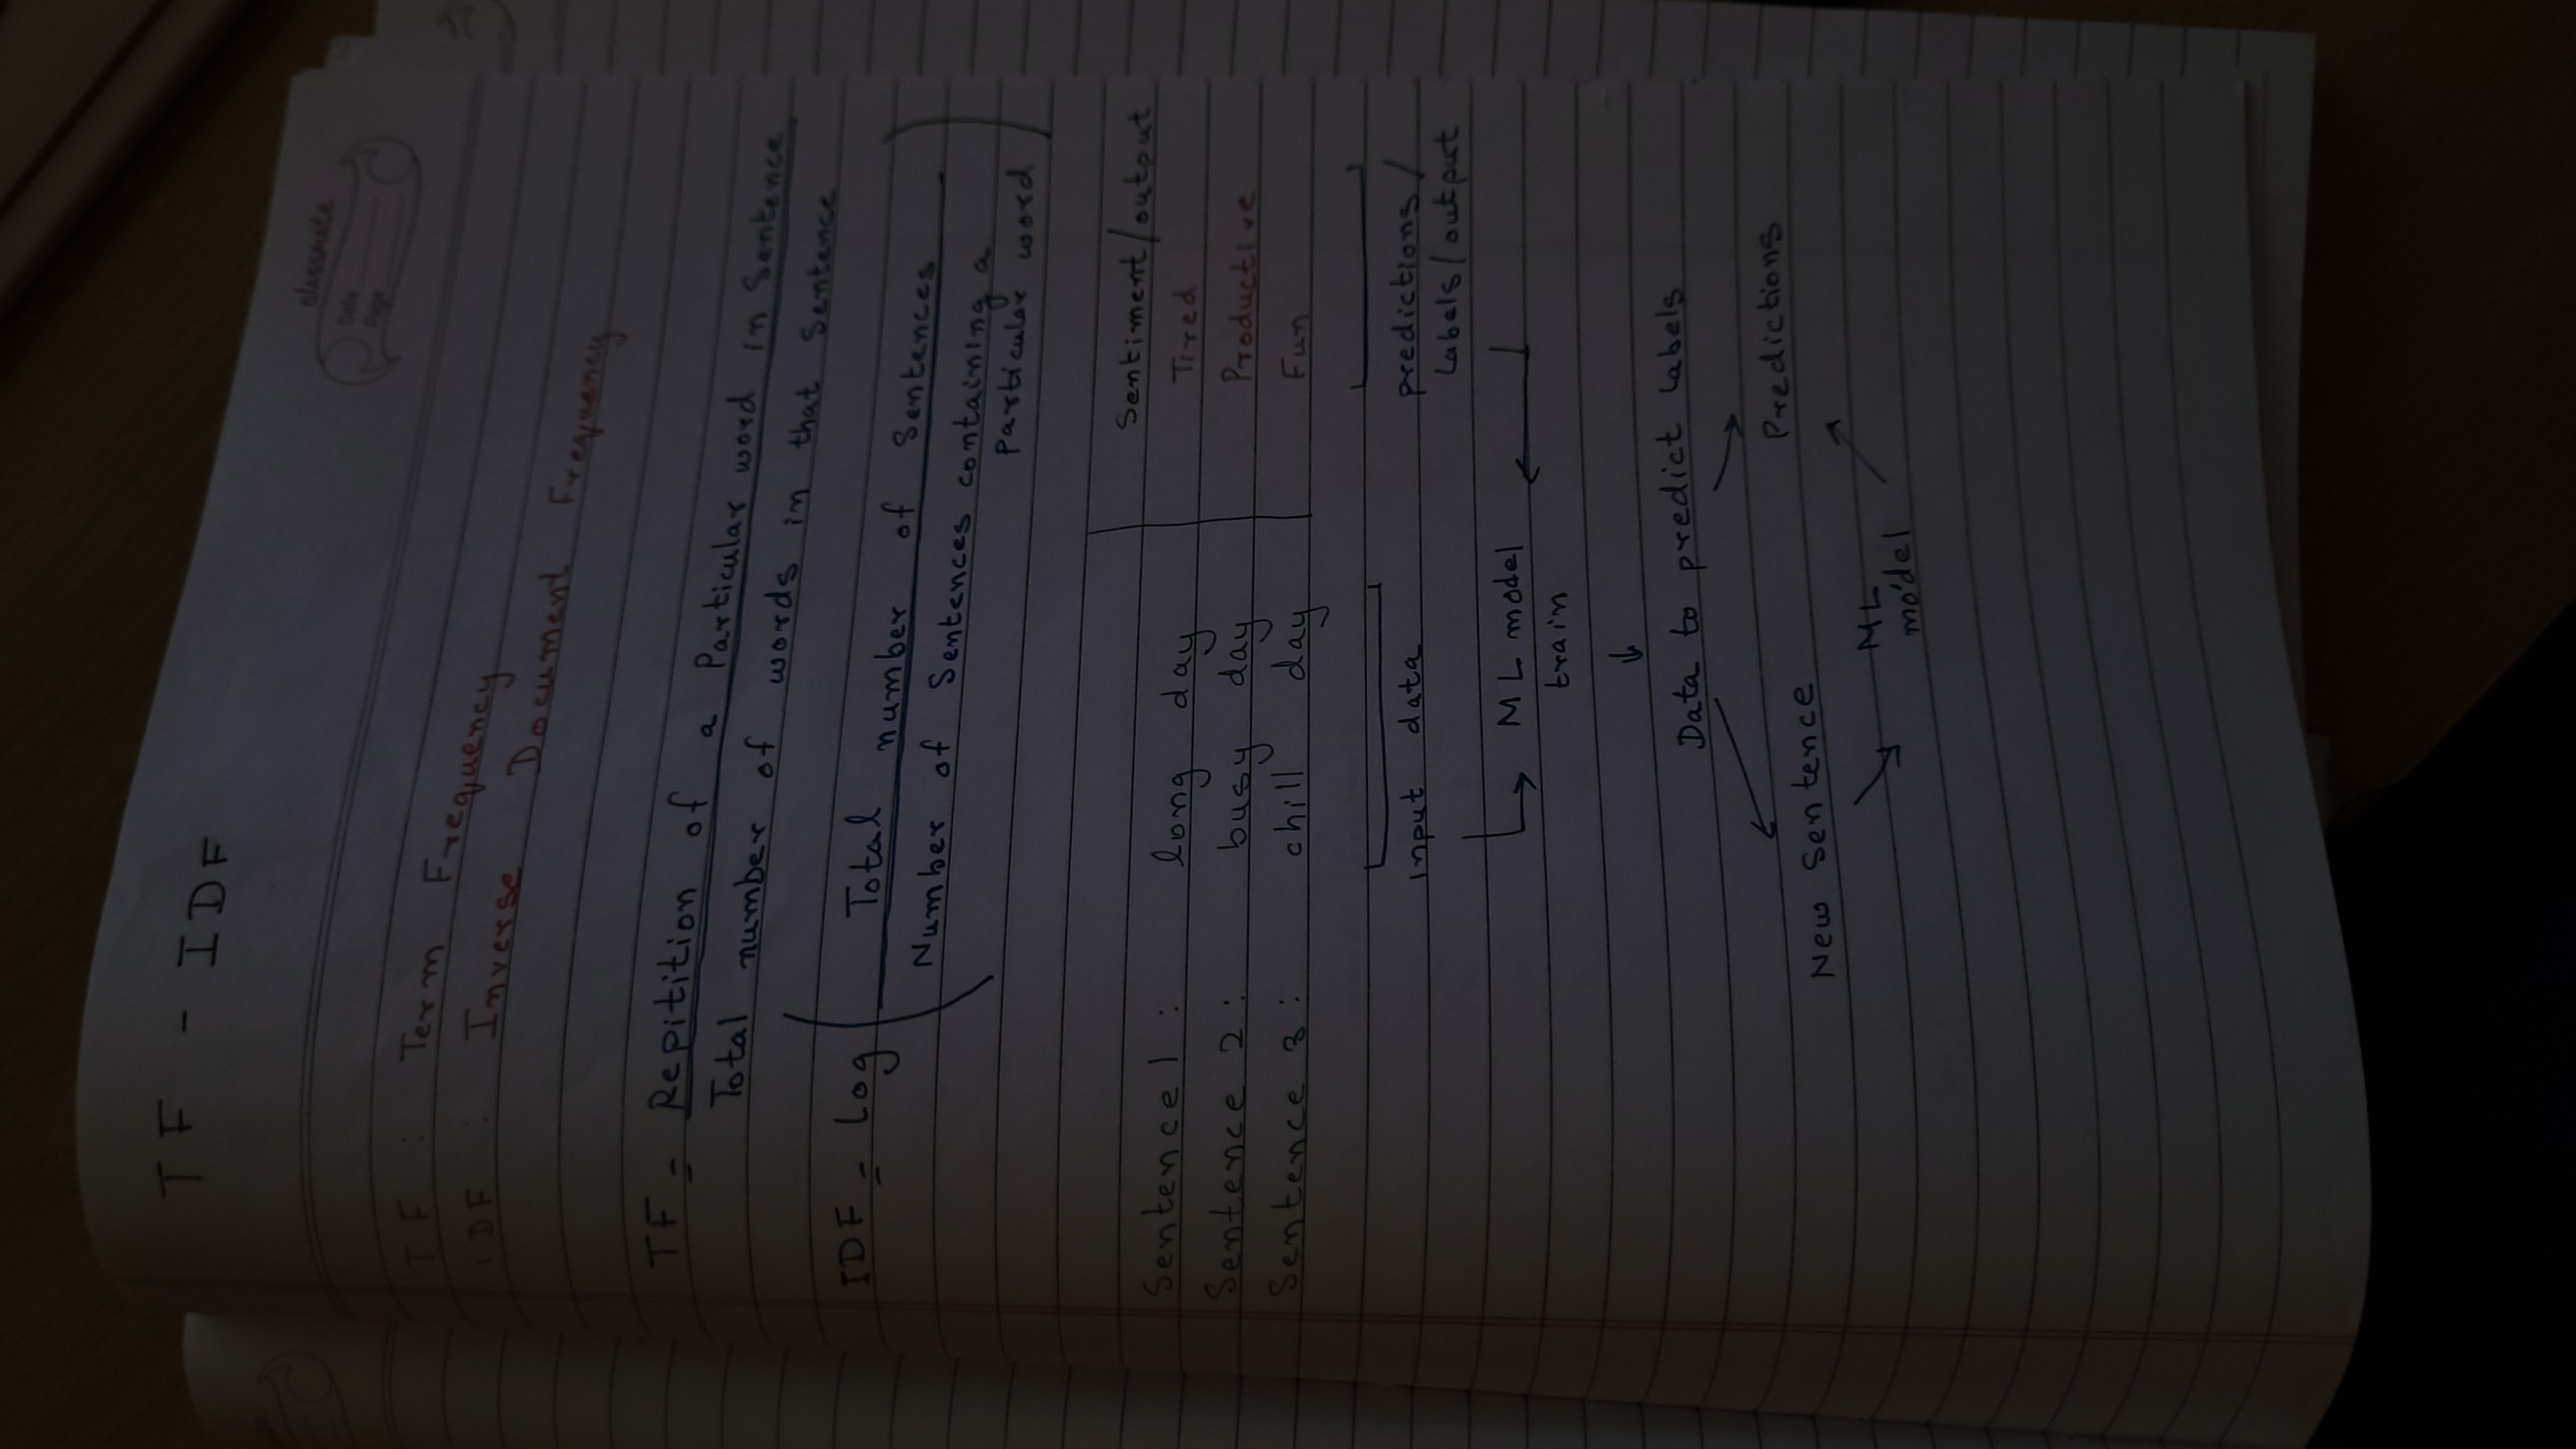 TF - IDF
classmate
Date
Page
TF : Term Frequency
IDF : Inverse Document Frequency
TF = Repitition of a Particular word in Sentence
Total number of words in that Sentence
IDF = Log ( Total number of Sentences
Number of Sentences containing a
particular word )
Sentiment/output
Sentence 1 : long day Tired
Sentence 2 : busy day Productive
Sentence 3 : chill day Fun
input data predictions/
Labels/output
ML model
train
Data to predict Labels
New Sentence Predictions
ML
model